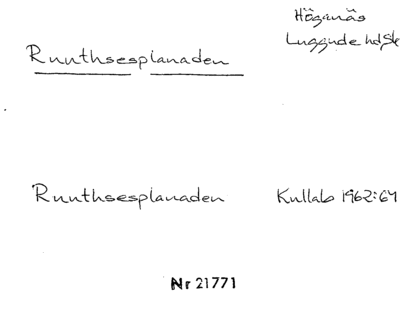 Höganäs
Luggude hd Sk
Ruuthsesplanaden
Ruuthsesplanaden Kullab 1962:64
Nr 21771